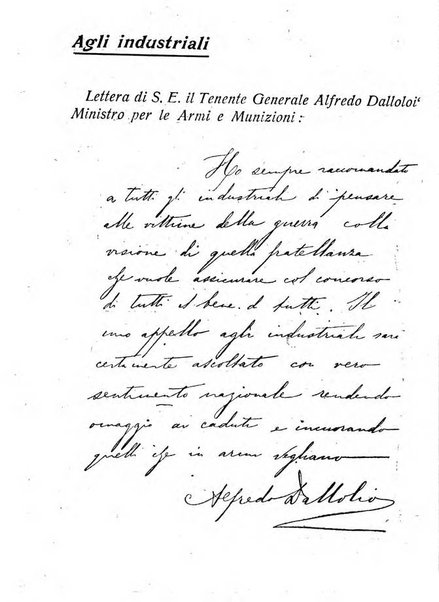 Agli industriali
Lettera di S. E. il Tenente Generale Alfredo Dalloloi
Ministro per le Armi e Munizioni:
Ho sempre raccomandato
a tutti gli industriali di pensare
alle vittime della guerra colla
visione di quella fratellanza
che vuole assicurare col concorso
di tutti il bene di tutti. Il
mio appello agli industriali sarà
certamente ascoltato con vero
sentimento nazionale rendendo
omaggio ai caduti e incuorando
quelli che in armi vegliano
Alfredo Dallolio